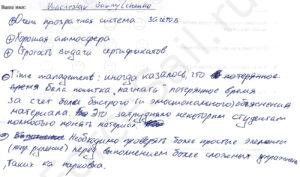 Ваше имя: Viacheslav Danylchenko
⊕ Очень прозрачная система зачётов
⊕ Хорошая атмосфера
⊕ Строгость выдачи сертификатов
⊖ Time management: иногда казалось, что потерянное
время была попытка "нагнать" потерянное время
за счет более быстрого (и эмоционального) объяснения
материала. Это затрудняло некоторым студентам
полностью понять материал.
⊖ Необходимо проверять более простые элементы
(thop рушние) перед выполнением более сложных упражнений,
таких как парковка.